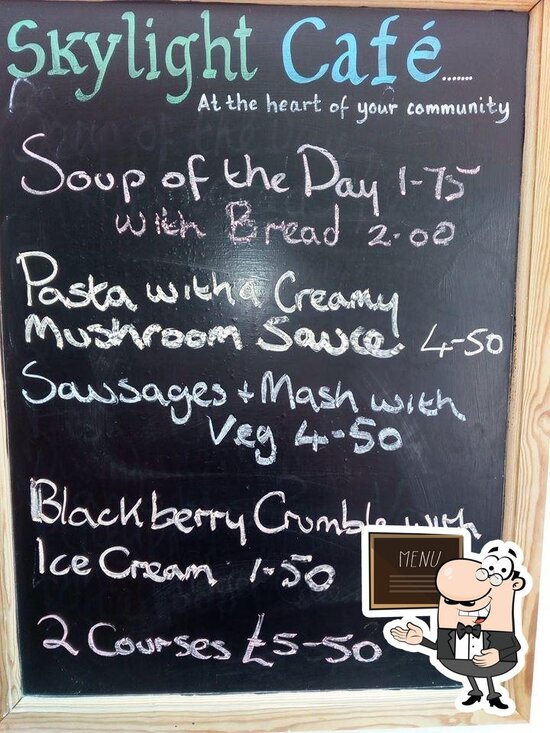 Skylight Café......
At the heart of your community
Soup of the Day 1-75
with Bread 2.00
Pasta with a Creamy
Mushroom Sauce 4-50
Sausages + Mash with
Veg 4-50
Blackberry Crumble with
Ice Cream 1-50
MENU
2 Courses £5-50